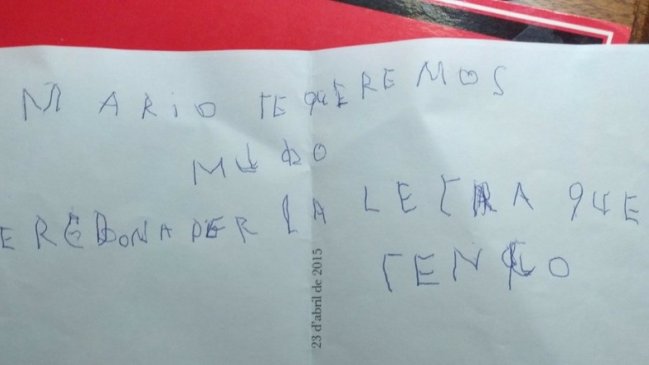 MARIO TE QUEREMOS
MUDO
EREDONADER LA LETRA QUE
TENGO
23 d'abril de 2015